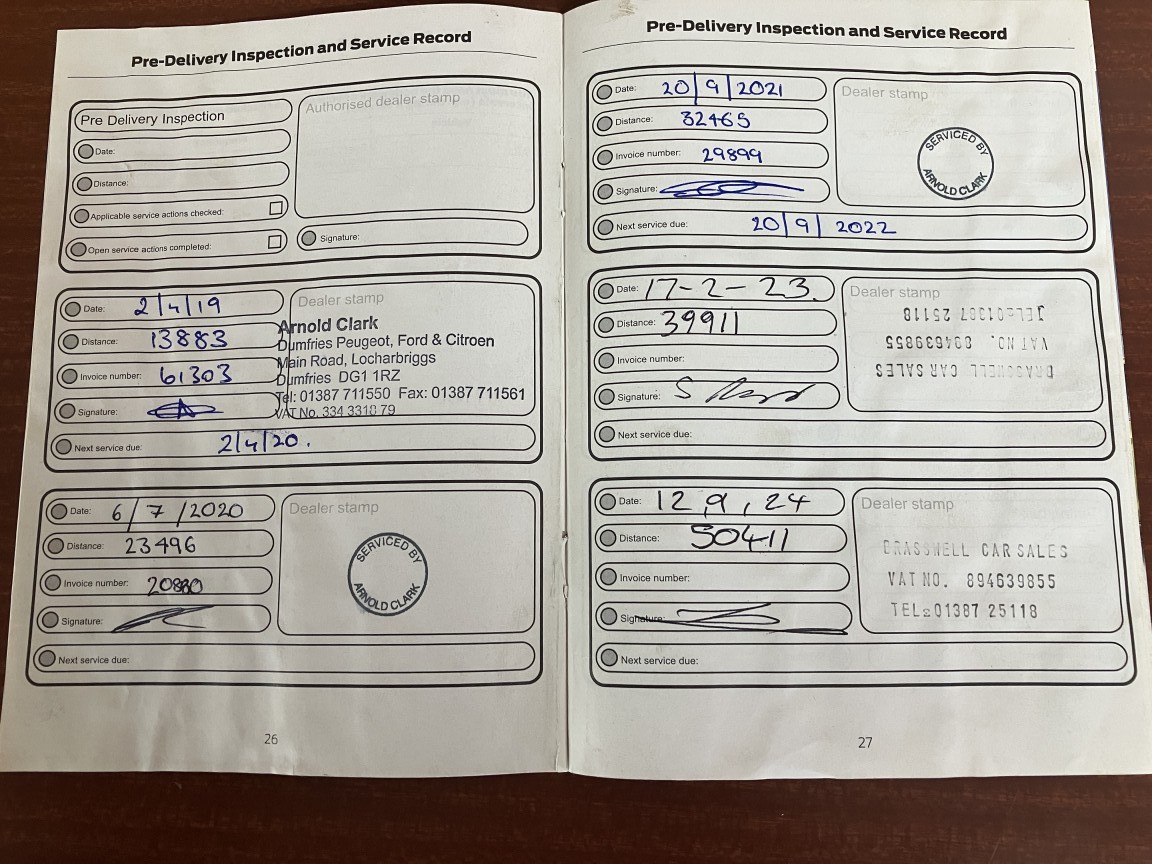 Pre-Delivery Inspection and Service Record
Pre Delivery Inspection
Date:
Distance:
Applicable service actions checked:
Open service actions completed:
Authorised dealer stamp
Signature:
Date: 2/4/19
Distance: 13883
Invoice number: 61303
Signature:
Next service due: 2/4/20.
Dealer stamp
Arnold Clark
Dumfries Peugeot, Ford & Citroen
Main Road, Locharbriggs
Dumfries DG1 1RZ
Tel: 01387 711550 Fax: 01387 711561
VAT No. 334 3318 79
Date: 6/7/2020
Distance: 23496
Invoice number:
Signature:
Next service due:
Dealer stamp
SERVICED BY
ARNOLD CLARK
26
Pre-Delivery Inspection and Service Record
Date: 20/9/2021
Distance: 32465
Invoice number: 29899
Signature:
Next service due: 20/9/2022
Dealer stamp
SERVICED BY
ARNOLD CLARK
Date: 17-2-23.
Distance: 39911
Invoice number:
Signature:
Next service due:
Dealer stamp
CAR SALES
VAT NO. 894639855
TEL:01387 25118
Date: 12,9,24
Distance: 50411
Invoice number:
Signature:
Next service due:
Dealer stamp
CAR SALES
VAT NO. 894639855
TEL:01387 25118
27